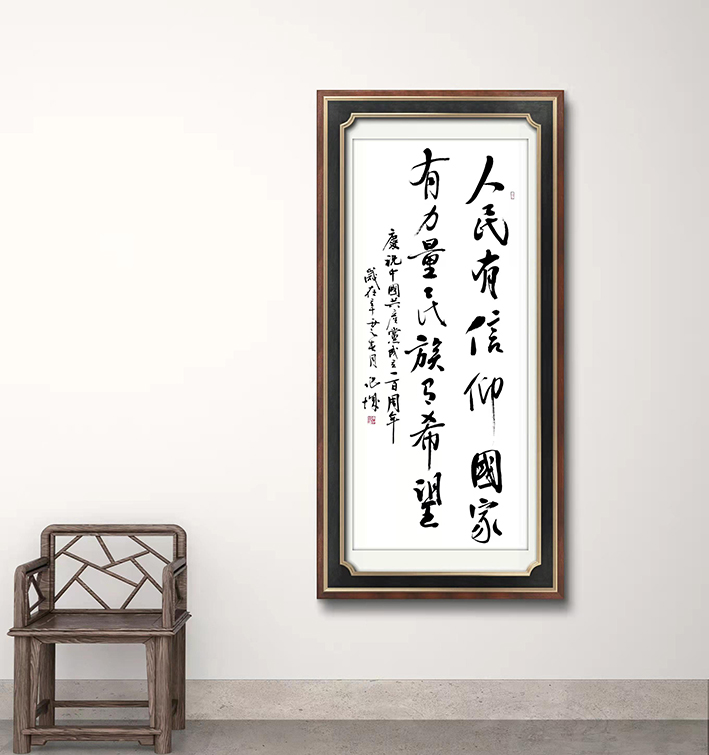 人民有信仰國家
有力量民族有希望
慶祝中國共產黨成立一百周年
歲在辛丑 月